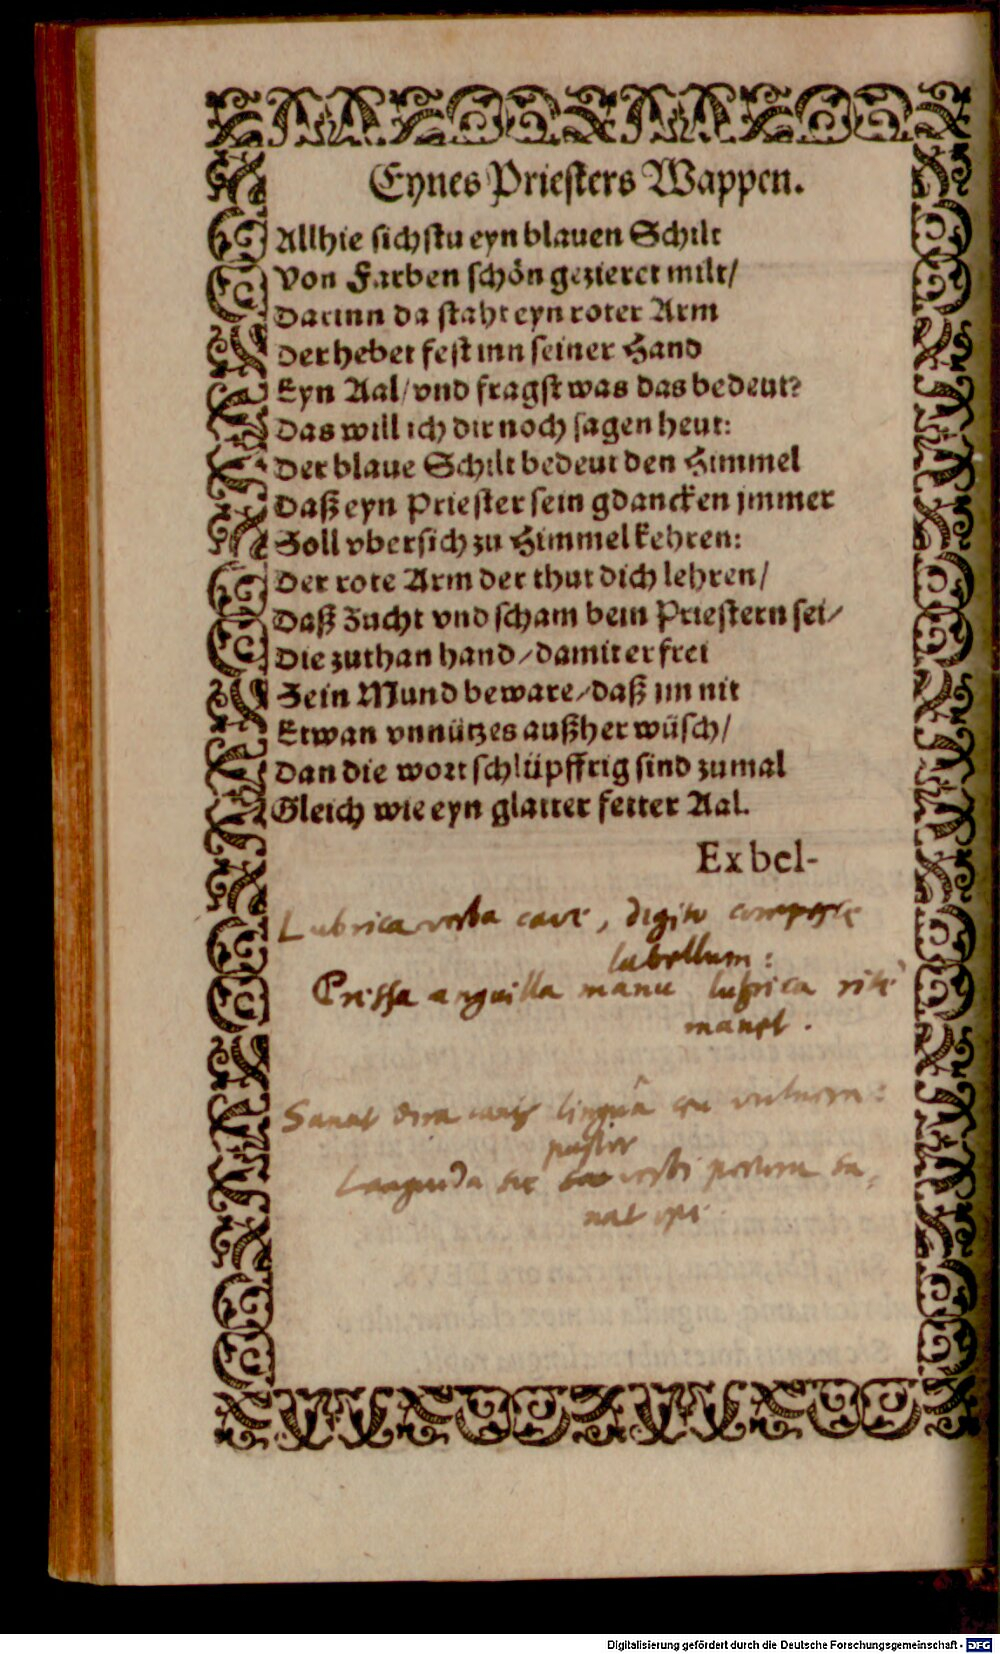 Eynes Priesters Wappen.
Allhie sichstu eyn blauen Schilt
Von Farben schön gezieret milt/
Darinn da staht eyn roter Arm
Der hebet fest inn seiner Hand
Eyn Aal/ vnd fragst was das bedeut?
Das will ich dir noch sagen heut:
Der blaue Schilt bedeut den Himmel
Daß eyn Priester sein gdancken jmmer
Soll vbersich zu Himmel kehren:
Der rote Arm der thut dich lehren/
Daß Zucht vnd scham bein Priestern sei/
Die zuthan hand/ damit er frei
Sein Mund beware/ daß im nit
Etwan vnnützes außher wüsch/
Dan die wort schlüpffrig sind zumal
Gleich wie eyn glatter fetter Aal.
Ex bel-
Lubrica verba cave, digito compesce
labellum:
Pressa anguilla manu lubrica ritè
manet.
Sanat dira canis linguâ vulnera:
pastor
Languida sic verbi pectora sa-
nat
Digitalisierung gefördert durch die Deutsche Forschungsgemeinschaft - DFG